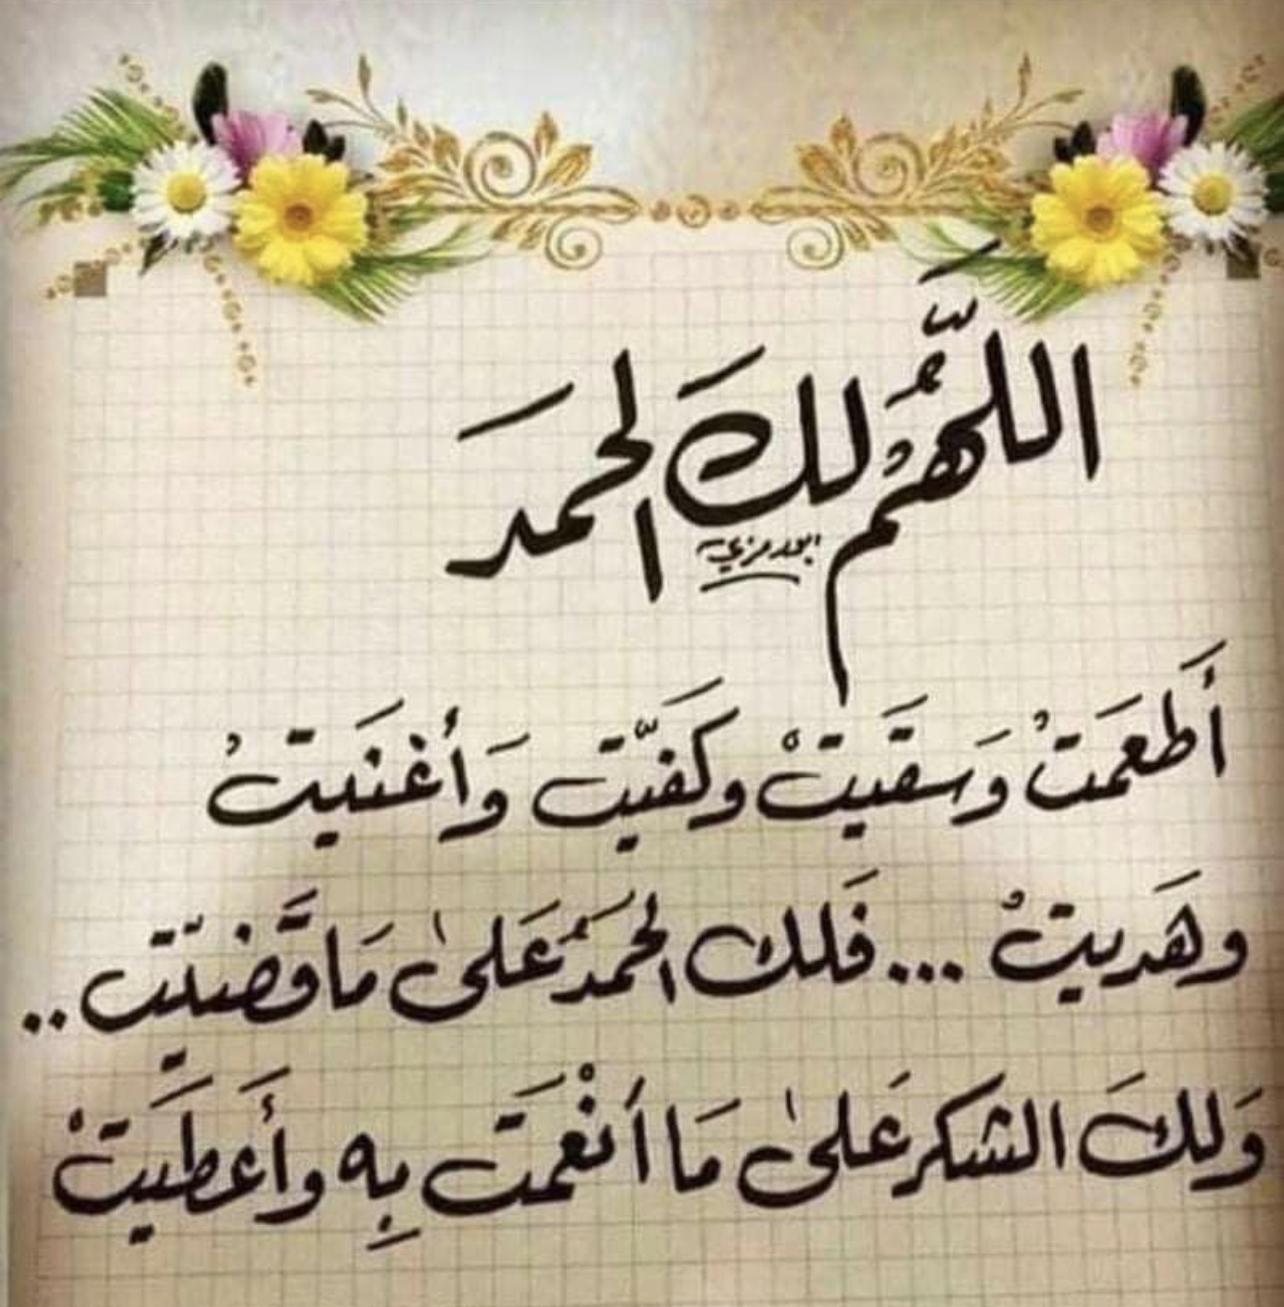 اللَّهُمَّ لكَ الحمدَ
أَطعَمتْ وَسقَيتْ وكَفيّت وَأغنَيتْ
وهَديتْ ... فَلك الحَمدُ عَلىٰ مَا قَضيّت ..
وَلكَ الشكر عَلىٰ مَا أنْعَمت بِه وأَعطَيتْ